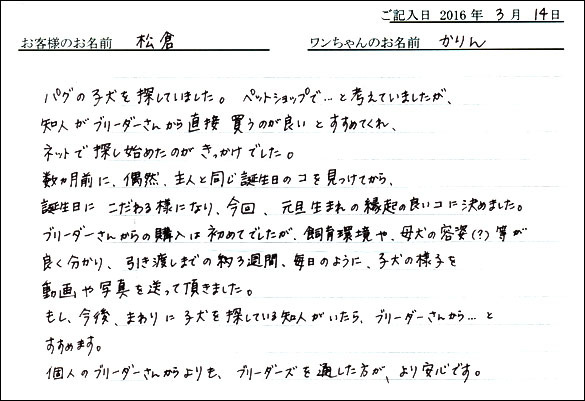 ご記入日 2016 年 3 月 14 日
お客様のお名前 松倉 ワンちゃんのお名前 かりん
パグの子犬を探していました。ペットショップで…と考えていましたが、
知人がブリーダーさんから直接買うのが良いとすすめてくれ、
ネットで探し始めたのがきっかけでした。
数ヵ月前に、偶然、主人と同じ誕生日のコを見つけてから、
誕生日にこだわる様になり、今回、元旦生まれの縁起の良いコに決めました。
ブリーダーさんからの購入は初めてでしたが、飼育環境や、母犬の容姿(?)等が
良く分かり、引き渡しまでの約3週間、毎日のように、子犬の様子を
動画や写真を送って頂きました。
もし、今後、まわりに子犬を探している知人がいたら、ブリーダーさんから…と
すすめます。
個人のブリーダーさんからよりも、ブリーダーズを通した方が、より安心です。